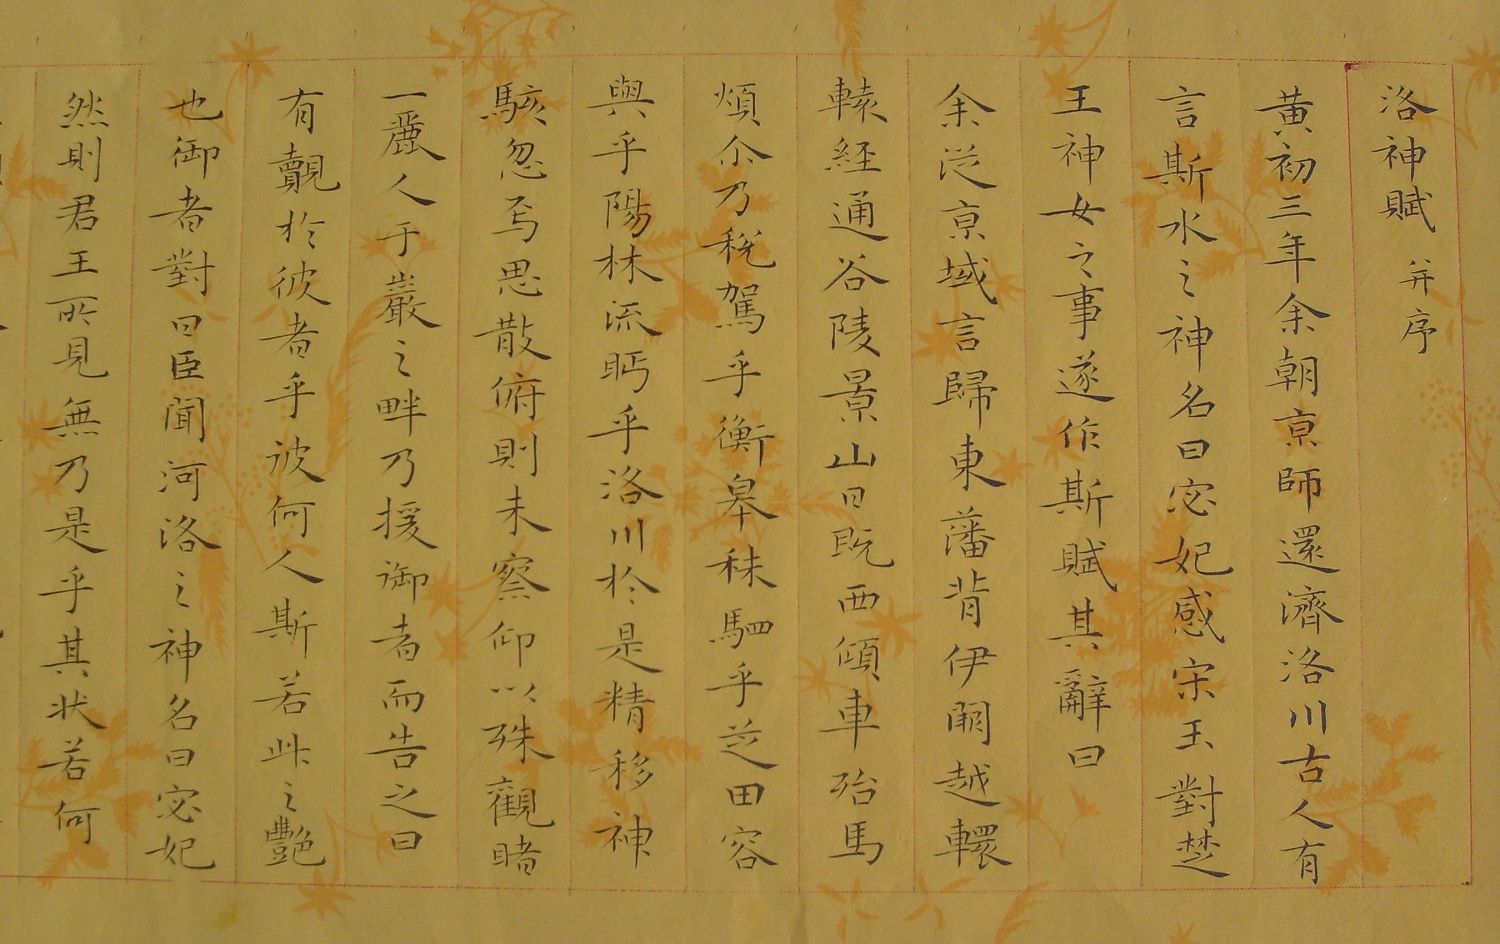 洛神賦 并序
黄初三年余朝京師還濟洛川古人有
言斯水之神名曰宓妃感宋玉對楚
王神女之事遂作斯賦其辭曰
余從京域言歸東藩背伊闕越轘
轅経通谷陵景山日既西傾車殆馬
煩尒乃稅駕乎蘅皋秣駟乎芝田容
與乎陽林流眄乎洛川於是精移神
駭忽焉思散俯則未察仰以殊觀睹
一麗人于巖之畔乃援御者而告之曰
有覿於彼者乎彼何人斯若此之艷
也御者對曰臣聞河洛之神名曰宓妃
然則君王所見無乃是乎其状若何